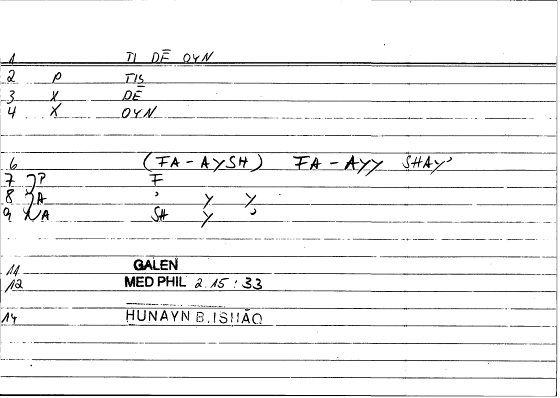 1 TI DĒ OYN
2 P TIS
3 X DĒ
4 X OYN
6 (FA - AYSH) FA - AYY SHAY'
7 P F
8 A ' Y Y
9 NA SH Y '
11 GALEN
12 MED PHIL 2.15:33
14 HUNAYN B. ISHĀQ